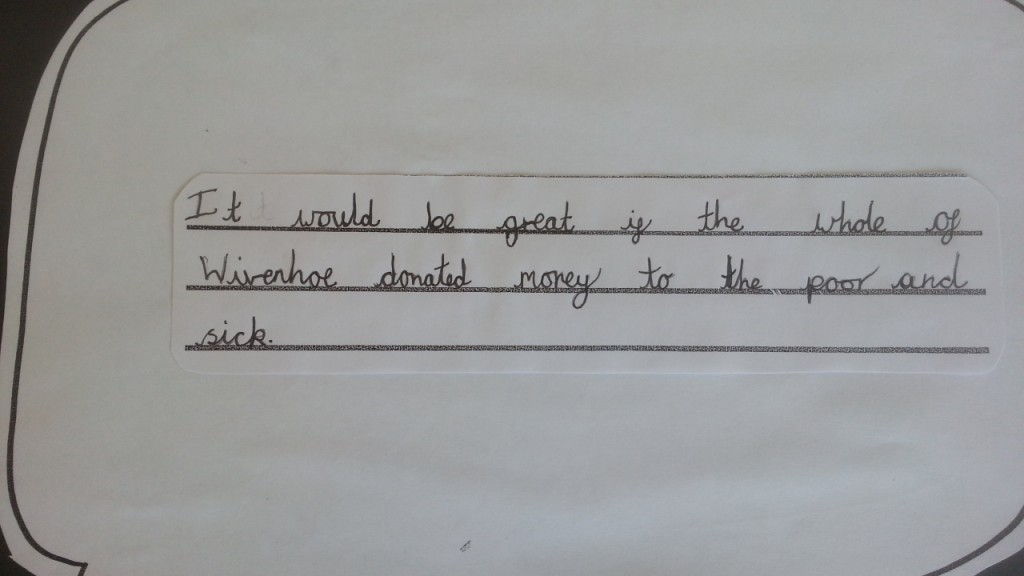 It would be great if the whole of
Wivenhoe donated money to the poor and
sick.